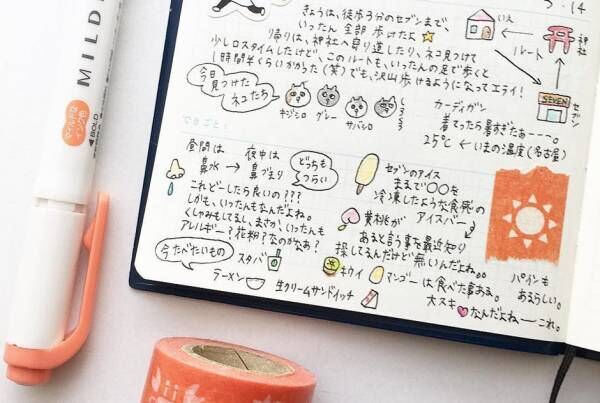 5.14
きょうは、徒歩3分のセブンまで、
いったん全部歩けたよ
帰りは、神社へ寄り道したり、ネコ見つけて
少しロスタイムしたけど、このルートも、いったんの足で歩くと
1時間半くらいかかった(笑)でも、沢山歩けるようになってエライ!
いえ
神社
ルート
SEVEN
セブン
今日
見つけた
ネコたち
キジシロ
グレー
サバシロ
しろくろ
カーディガン
着てったら暑すぎたぁーーー。
25℃ ← いまの温度(名古屋)
できごと:
昼間は
鼻水
→
夜中は
鼻づまり
どっちも
うつらい
これどーしたら良いの???
しかも、いったんもなんだよね。
くしゃみもしてるし、まさか、いったんも
アレルギー?花粉?なのかなぁ?
セブンのアイス
まるで〇〇を
冷凍したような食感の
アイスバー
黄桃が
あると言う事を最近知り
探してるんだけど無いんだよね。。
キウイ
マンゴーは食べた事ある。
大スキ
なんだよねーーこれ。
パインも
あるらしい。
今たべたいもの
スタバ
ラーメン
生クリームサンドイッチ
MILD
マイルド
BOLD